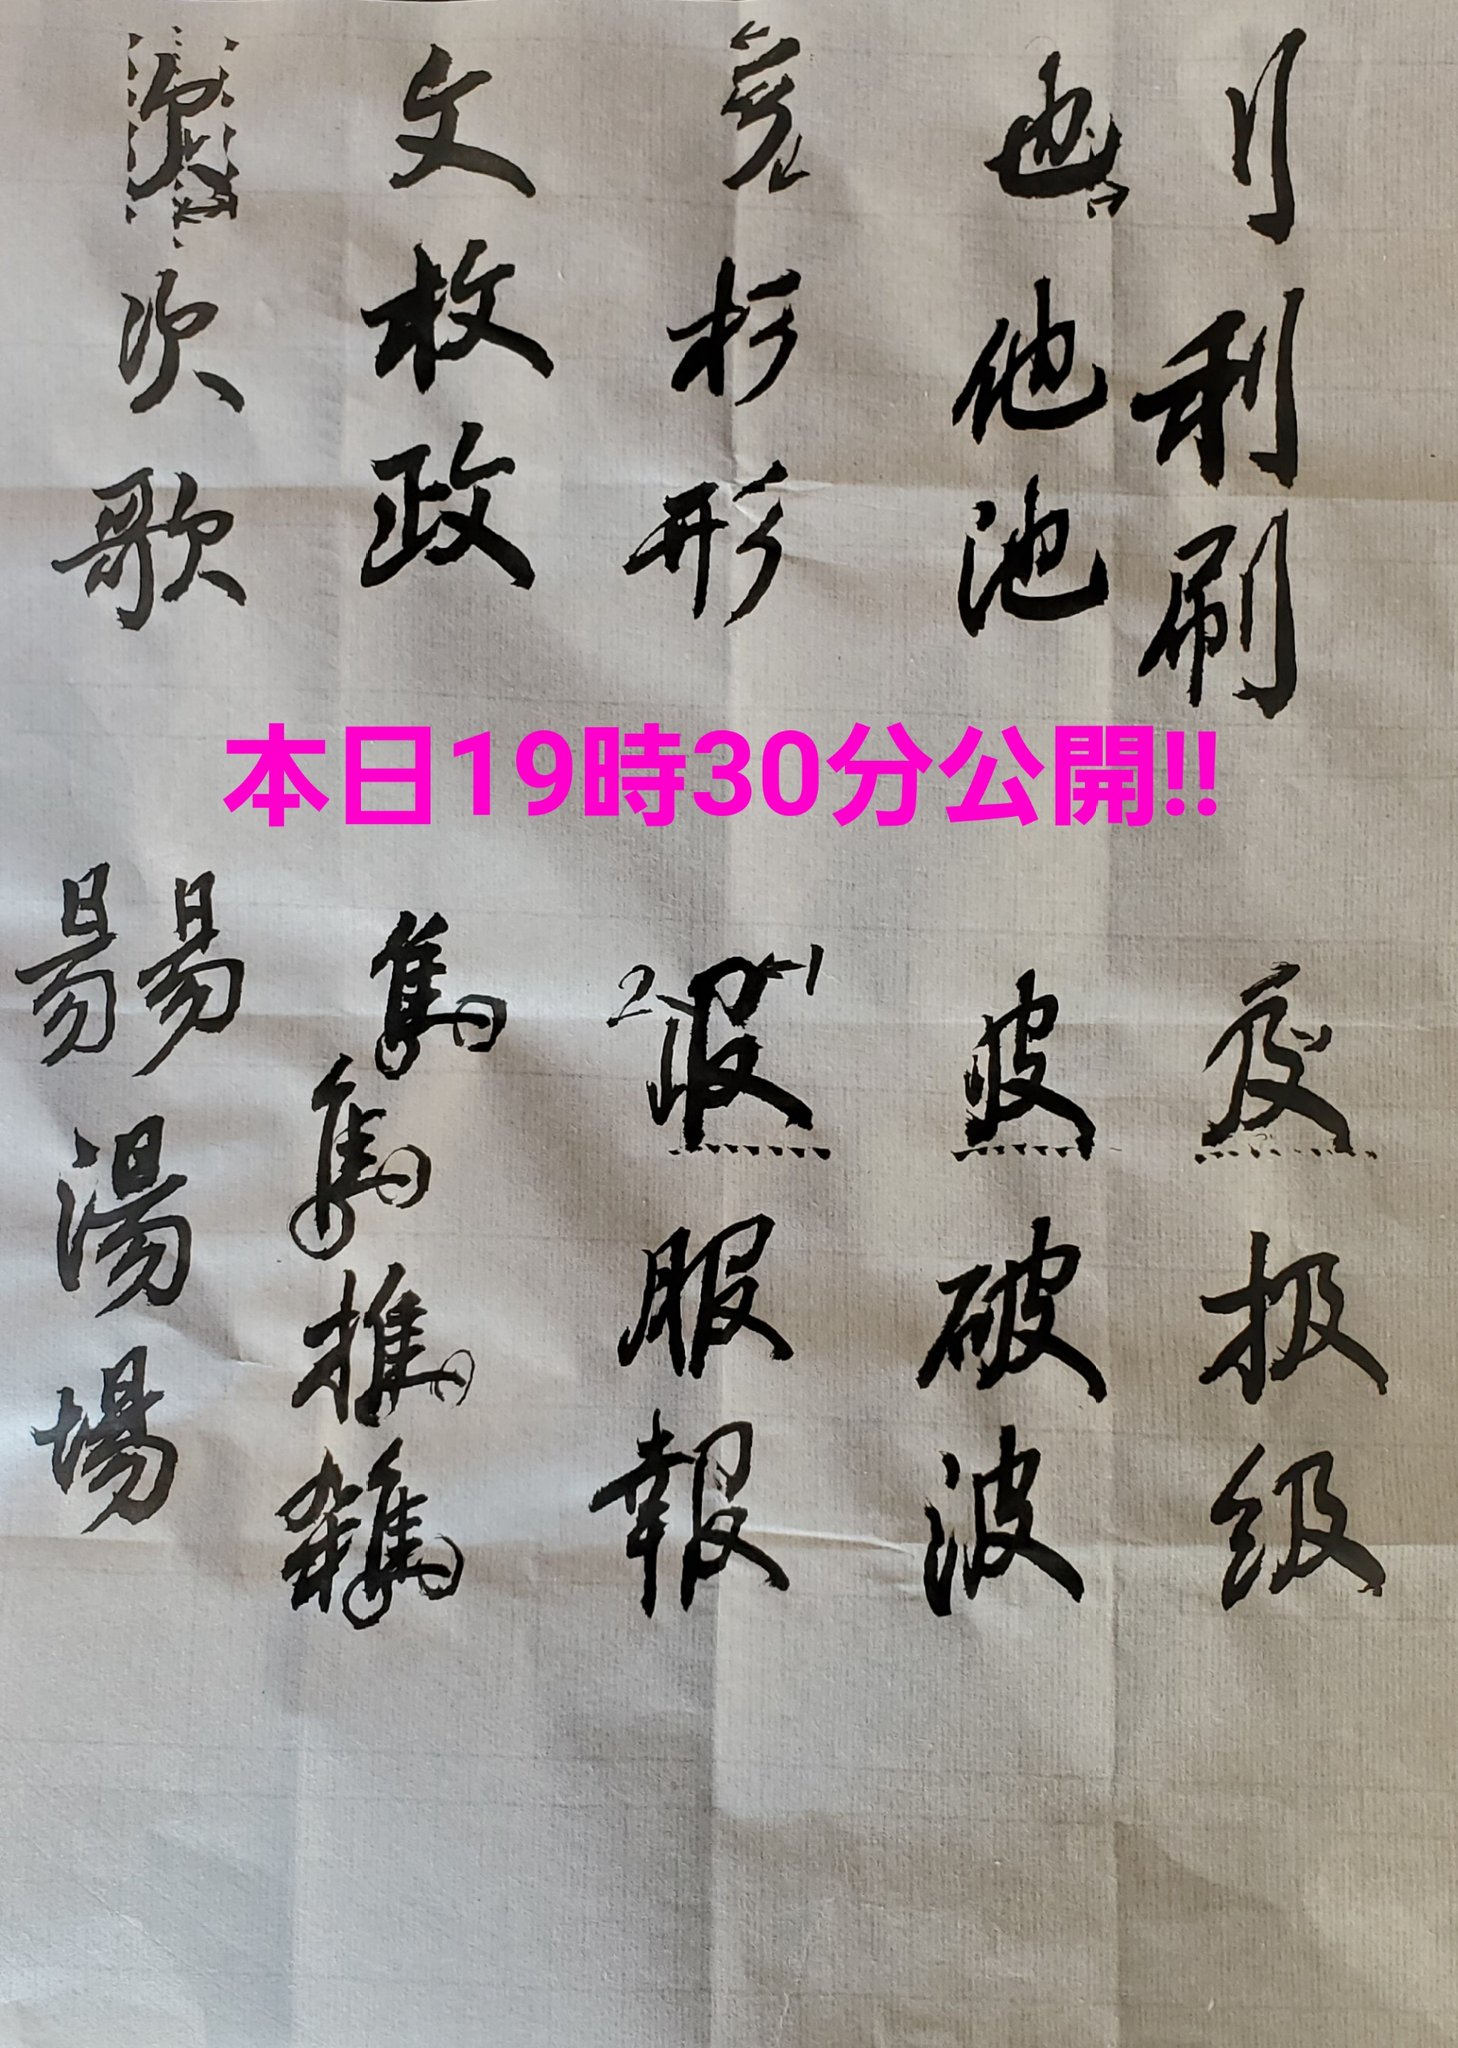 刂
利
刷
也
他
池
彡
杉
形
攵
枚
政
欠
次
歌
本日19時30分公開!!
及
扱
級
皮
破
波
2 1
服
報
隹
隹
推
雑
昜昜
湯
場